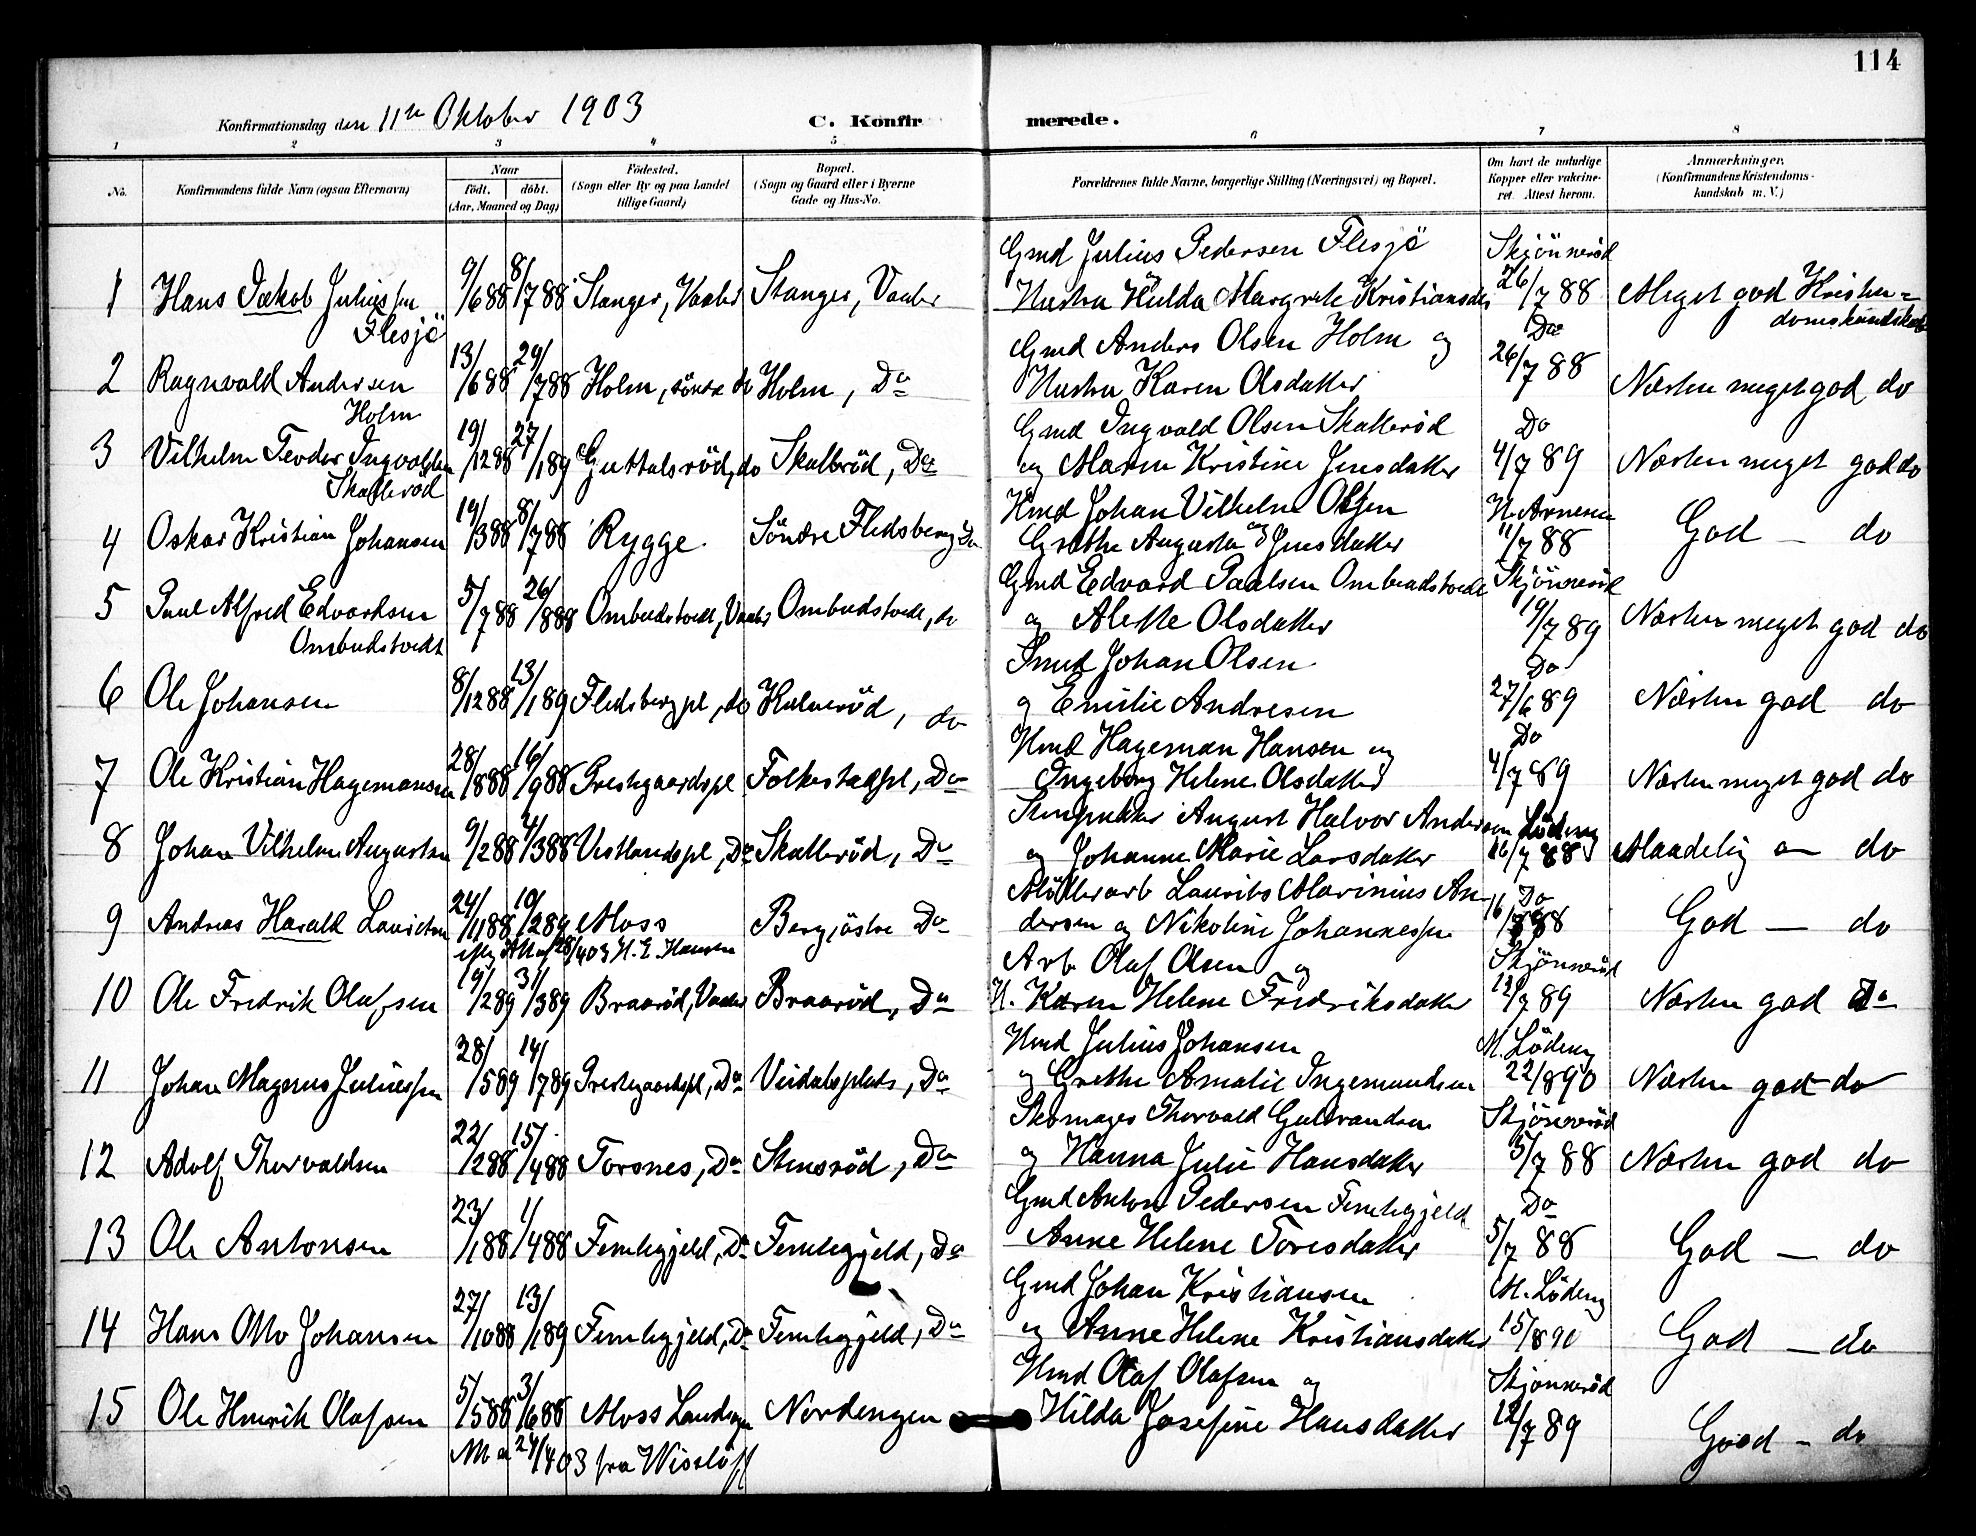 114
Konfirmationsdag den 11te Oktober 1903
C. Konfirmerede.
1 2 3 4 5 6 7 8
No.
Konfirmandens fulde Navn (ogsaa Efternavn)
Naar
födt. döbt.
(Aar, Maaned og Dag)
Födested.
(Sogn eller By og paa Landet
tillige Gaard)
Bopæl.
(Sogn og Gaard eller i Byerne
Gade og Hus-No.
Forældrenes fulde Navne, borgerlige Stilling (Næringsvei) og Bopæl.
Om havt de naturlige
Kopper eller vakcine-
ret. Attest herom.
Anmærkninger.
(Konfirmandens Kristendoms-
kundskab m. V.)
Gmd Julius Pedersen Flesjö Skjönneröd
1 Hans Jakob Juliussen 9/6 88 8/7 88 Stanger, Vaaler Stanger, Vaaler og Hustru Hulda Margrete Kristiansdtr 26/7 88 Meget god Kristen-
Flesjö domskundskab
Gmd Anders Olsen Holm og Do
2 Ragnvald Andersen 13/6 88 29/7 88 Holm, söndre do Holm, Do Hustru Karen Olsdatter 26/7 88 Næsten meget god do
Holm
Gmd Ingvald Olsen Skalleröd Do
3 Vilhelm Teodor Ingvaldsen 19/12 88 27/1 89 Guttalsröd, do Skalleröd, Do og Maren Kristine Jensdatter 4/7 89 Næsten meget god do
Skalleröd
Hmd Johan Vilhelm Olsen N. Arnesen
4 Oskar Kristian Johansen 19/3 88 8/7 88 Rygge Söndre Fledsberg Do og Grethe Augusta Jensdatter 11/7 88 God - do
Gmd Edvard Paulsen Ombudstvedt Skjönneröd
5 Paul Alfred Edvardsen 5/7 88 26/8 88 Ombudstvedt, Vaaler Ombudstvedt, do og Alette Olsdatter 19/7 89 Næsten meget god do
Ombudstvedt
Smed Johan Olsen Do
6 Ole Johansen 8/12 88 13/1 89 Fledsberg pl, do Holmeröd, do og Emilie Andresen 27/6 89 Næsten god do
Hmd Hageman Hansen og Do
7 Ole Kristian Hagemansen 28/8 88 16/9 88 Prestgaardspl Folkestadpl, Do Ingeborg Helene Olsdatter 4/7 89 Næsten meget god do
August Halvor Andersen Löding
8 Johan Vilhelm Augustsen 9/2 88 4/3 88 Vestlundspl, Do Skalleröd, Do og Johanne Marie Larsdatter 16/7 88 Maadelig - do
Möllerarb Laurits Marinius An- Do
9 Andreas Harald Lauritsen 24/11 88 10/2 89 Moss Berg östre Do dersen og Nikoline Johannessen 16/7 88 God - do
efter Att af 28/4 03 H. E. Hansen
Arb Olaf Olsen og Skjönneröd
10 Ole Fredrik Olafsen 19/2 89 31/3 89 Braaröd, Vaaler Braaröd, Do H. Karen Helene Fredriksdatter 12/7 89 Næsten god Do
Hmd Julius Johansen M. Löding
11 Johan Magnus Juliussen 28/5 89 14/7 89 Prestegaardspl, Do Vidalsplads, Do og Grethe Amalie Ingemundsen 22/8 90 Næsten god do
Skomager Thorvald Gulbrandsen Skjönneröd
12 Adolf Thorvaldsen 22/2 88 15/4 88 Torsnes, Do Stensröd, Do og Hanna Julie Hansdatter 5/7 88 Næsten god do
Gmd Anton Pedersen Femhegjeld Do
13 Ole Antonsen 23/1 88 1/4 88 Femhegjeld, Do Femhegjeld, Do Anne Helene Toresdatter 5/7 88 God - do
Gmd Johan Kristiansen M. Löding
14 Hans Otto Johansen 27/10 88 13/1 89 Femhegjeld, Do Femhegjeld, Do og Anne Helene Kristiansdatter 15/8 90 God - do
Hmd Olaf Olafsen og Skjönneröd
15 Ole Henrik Olafsen 5/5 88 3/6 88 Moss Landsogn Nordengen Hilda Josefine Hansdatter 12/7 89 Good - do
24/4 03 fra Wisslöff